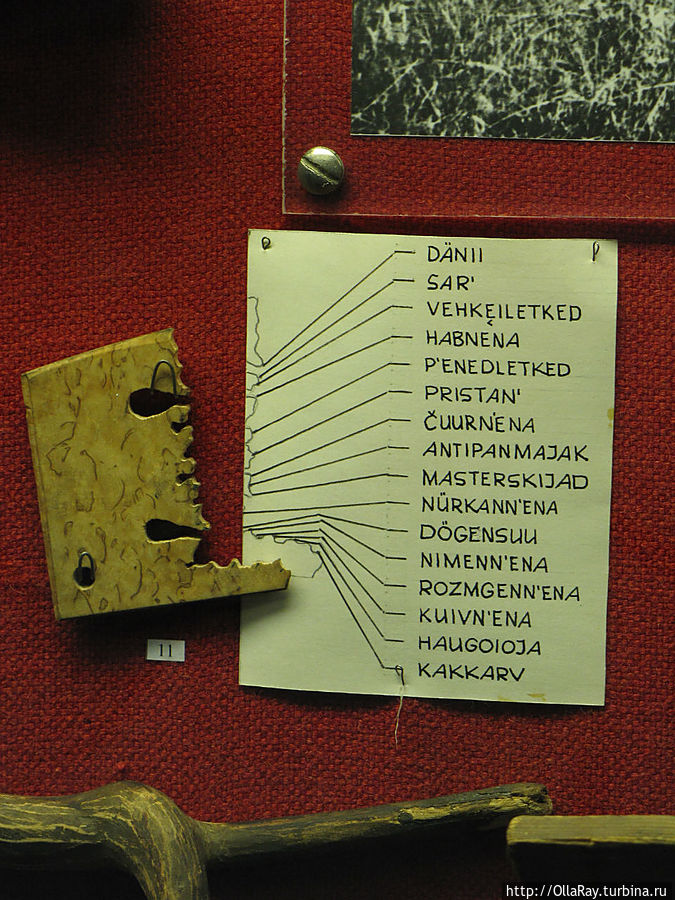 DÄNII
SAR'
VEHKEILETKED
HABNENA
P'ENEDLETKED
PRISTAN'
ČUURN'ENA
ANTIPANMAJAK
MASTERSKIJAD
NÜRKANN'ENA
DÖGENSUU
NIMENN'ENA
ROZMGENN'ENA
KUIVN'ENA
HAUGOIOJA
KAKKARV
11
http://OllaRay.turbina.ru